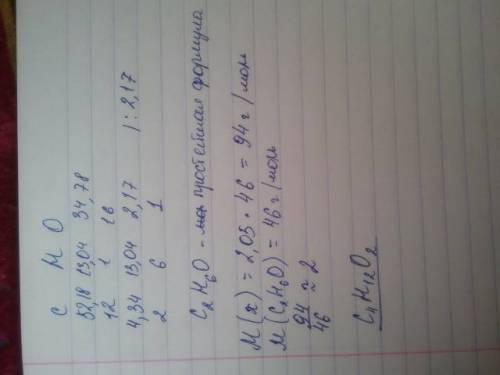 C H O
52,18 13,04 34,78
12 1 16
4,34 13,04 2,17 | : 2,17
2 6 1
C₂H₆O - простейшая формула
M(x) = 2,05 · 46 = 94 г/моль
M(C₂H₆O) = 46 г/моль
94/46 ≈ 2
C₄H₁₂O₂